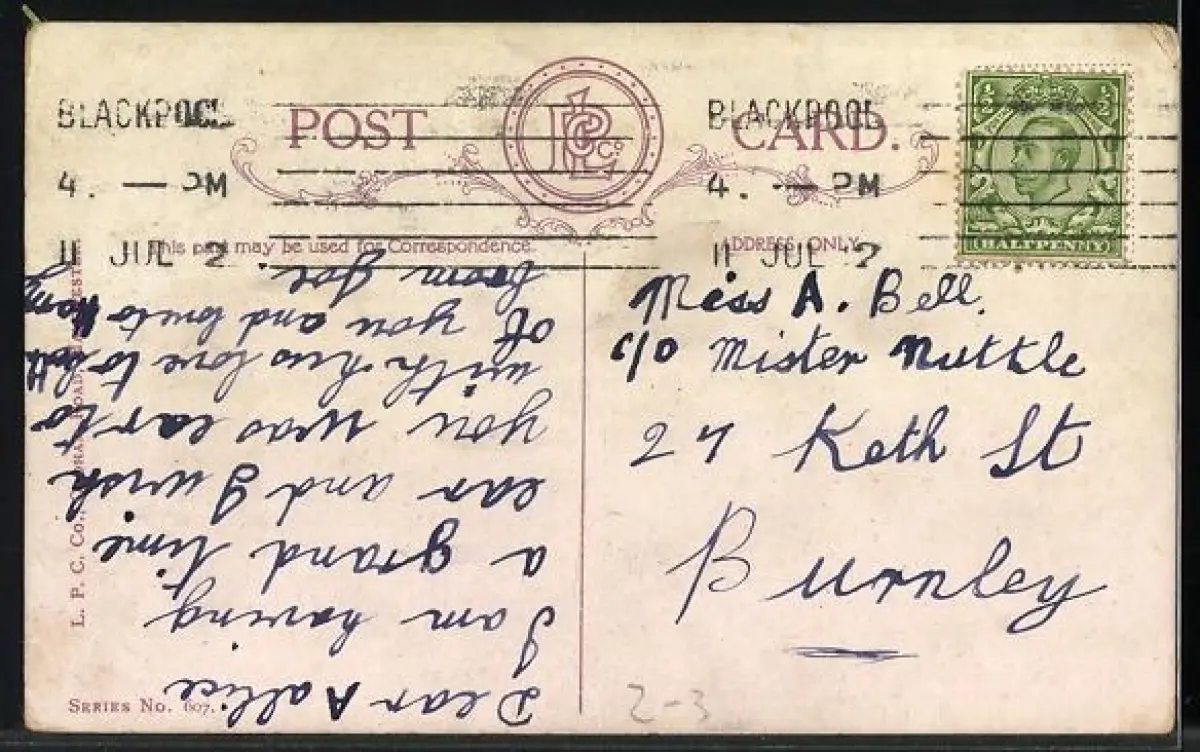 BLACKPOOL
4. — PM
11 JUL 2
POST CARD.
BLACKPOOL
4. — PM
11 JUL 2
This part may be used for Correspondence.
ADDRESS ONLY.
HALFPENNY
Miss A. Bell.
c/o Mister Nuttle
24 Keth St
Burnley
Dear Aallice
I am having
a grand time
ear and I wish
you was ear to
with hus love to both
of you and love to
from Joe
L. P. C. Co.,
SERIES No. 607.
2-3